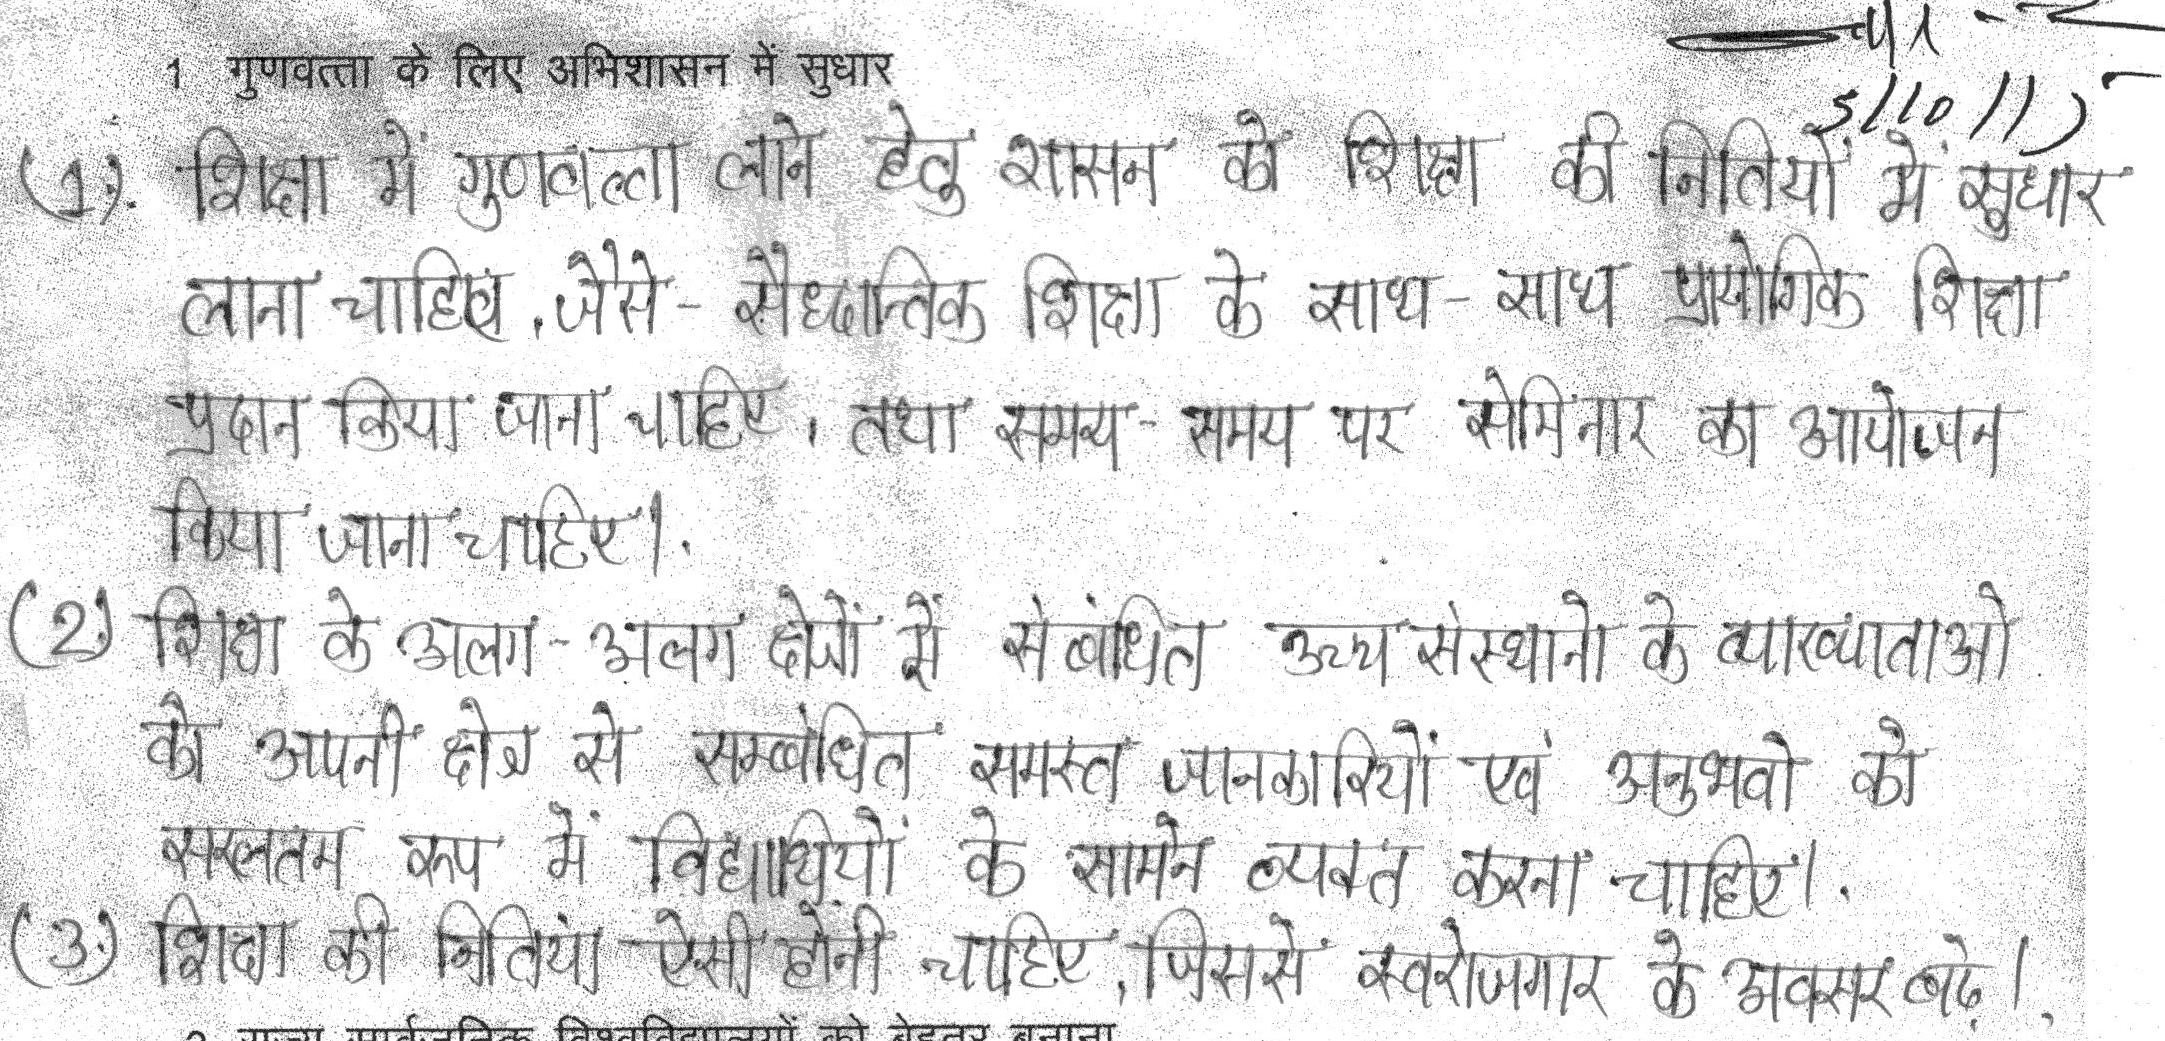 1 गुणवत्ता के लिए अभिशासन में सुधार
5/10/15
(1). शिक्षा में गुणवत्ता लाने हेतु शासन को शिक्षा की नितियों में सुधार
लाना चाहिए, जैसे - सैध्दान्तिक शिक्षा के साथ - साथ प्रायोगिक शिक्षा
प्रदान किया जाना चाहिए, तथा समय - समय पर सेमिनार का आयोजन
किया जाना चाहिए।.
(2) शिक्षा के अलग - अलग क्षेत्रों से संबंधित उच्च संस्थानो के व्याख्याताओ
को अपनी क्षेत्र से सम्बंधित समस्त जानकारियों एवं अनुभवो को
सरलतम रूप में विद्यार्थियों के सामने व्यक्त करना चाहिए।.
(3) शिक्षा की नितियां ऐसी होनी चाहिए, जिससे स्वरोजगार के अवसर बढ़े।.
2 राज्य सार्वजनिक विश्वविद्यालयों को बेहतर बनाना